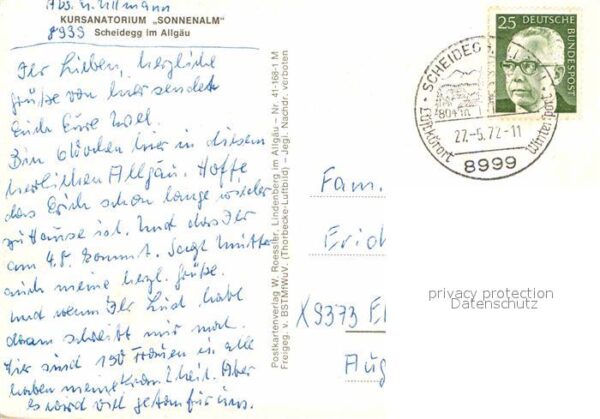 Abs. U. Ullmann
KURSANATORIUM „SONNENALM"
8999 Scheidegg im Allgäu
Ihr Lieben, herzliche
Grüße von hier sendet
Euch Eure
Bin 6 Wochen hier in diesem
herrlichen Allgäu. Hoffe
das Erich schon lange wieder
zu Hause ist. Und das Ihr
am 4.8. kommt. Sagt Mutter
auch meine herzl. Grüße.
Und wenn Ihr Lust habt
dann schreibt mir mal.
Hier sind 190 Frauen u. alle
haben meine Krankheit. Aber
es wird viel getan für uns.
Postkartenverlag W. Roessler, Lindenberg im Allgäu – Nr. 41-168-1 M
Freigeg. v. BSTMfWuV. (Thorbecke-Luftbild) – Jegl. Nachdr. verboten
25 DEUTSCHE
BUNDESPOST
SCHEIDEGG
27.-5.72-11
Luftkurort
Wintersport
8999
Fam.
Erich
X9373
privacy protection
Datenschutz